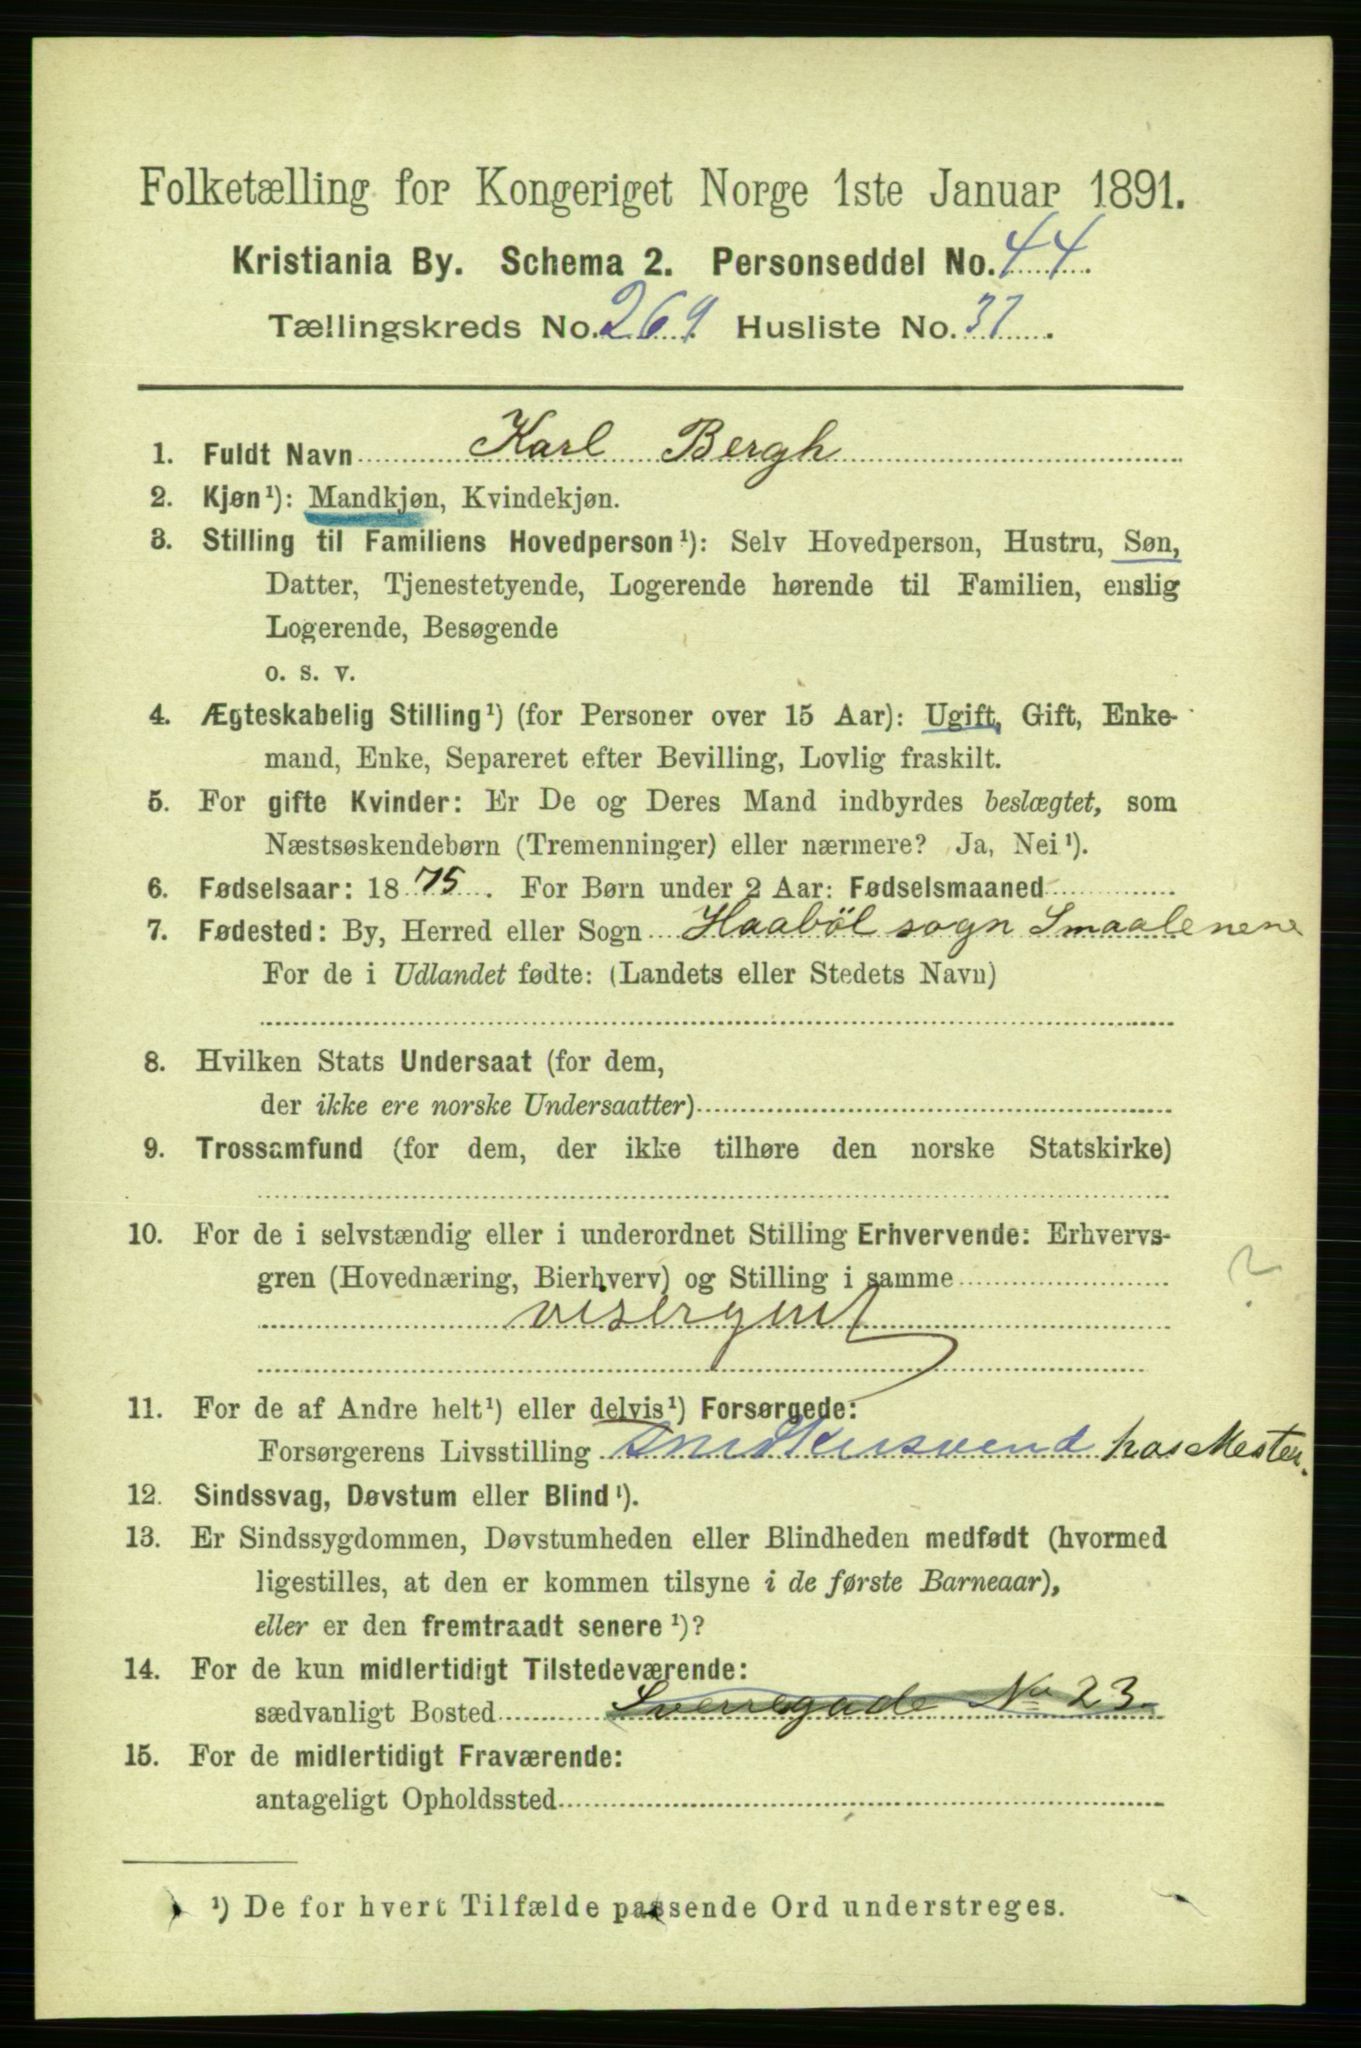 Folketælling for Kongeriget Norge 1ste Januar 1891.
Kristiania By. Schema 2. Personseddel No. 44.
Tællingskreds No. 269. Husliste No. 37.
1. Fuldt Navn Karl Bergh
2. Kjøn¹): Mandkjøn, Kvindekjøn.
3. Stilling til Familiens Hovedperson¹): Selv Hovedperson, Hustru, Søn,
Datter, Tjenestetyende, Logerende hørende til Familien, enslig
Logerende, Besøgende
o. s. v.
4. Ægteskabelig Stilling¹) (for Personer over 15 Aar): Ugift, Gift, Enke-
mand, Enke, Separeret efter Bevilling, Lovlig fraskilt.
5. For gifte Kvinder: Er De og Deres Mand indbyrdes beslægtet, som
Næstsøskendebørn (Tremenninger) eller nærmere? Ja, Nei¹).
6. Fødselsaar: 1875. For Børn under 2 Aar: Fødselsmaaned
7. Fødested: By, Herred eller Sogn Haaböl sogn Smaalenene
For de i Udlandet fødte: (Landets eller Stedets Navn)
8. Hvilken Stats Undersaat (for dem,
der ikke ere norske Undersaatter)
9. Trossamfund (for dem, der ikke tilhøre den norske Statskirke)
10. For de i selvstændig eller i underordnet Stilling Erhvervende: Erhvervs-
gren (Hovednæring, Bierhverv) og Stilling i samme
visergut
?
11. For de af Andre helt¹) eller delvis¹) Forsørgede:
Forsørgerens Livsstilling Snedkersvend hos Mester.
12. Sindssvag, Døvstum eller Blind¹).
13. Er Sindssygdommen, Døvstumheden eller Blindheden medfødt (hvormed
ligestilles, at den er kommen tilsyne i de første Barneaar),
eller er den fremtraadt senere¹)?
14. For de kun midlertidigt Tilstedeværende:
sædvanligt Bosted Sverregade No 23.
15. For de midlertidigt Fraværende:
antageligt Opholdssted
¹) De for hvert Tilfælde passende Ord understreges.